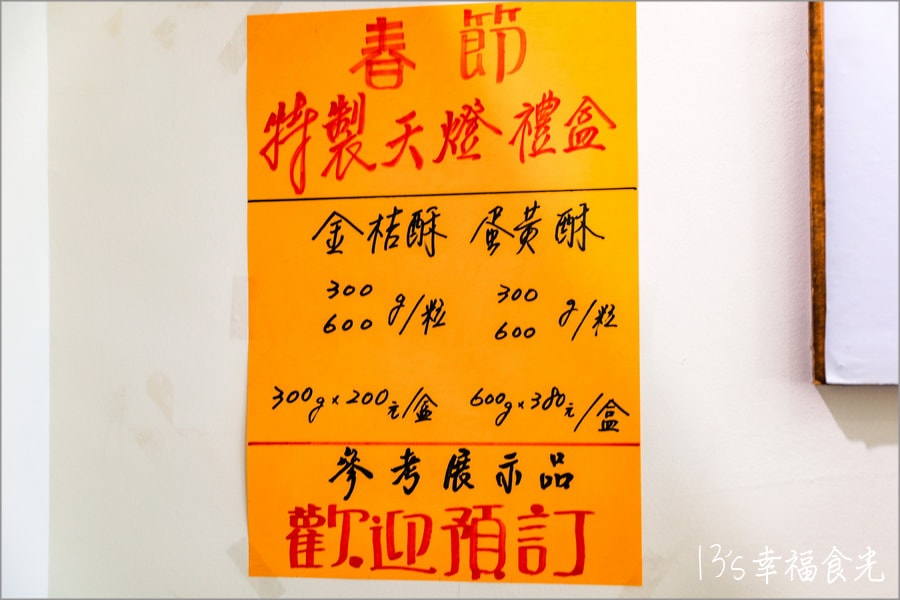 春節
特製天燈禮盒
金桔酥 蛋黃酥
300 300
600 g/粒 600 g/粒
300g×200元/盒 600g×380元/盒
參考展示品
歡迎預訂
13's幸福食光